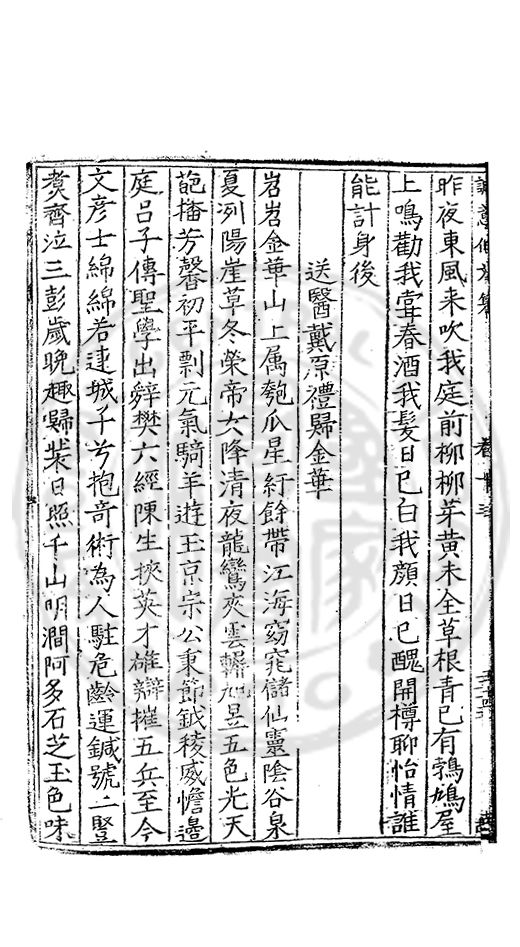 誠意伯文集　卷十三
昨夜東風来吹我庭前柳柳芽黃未全草根青已有鵓鳩屋
上鳴勸我甞春酒我髮日已白我顏日已醜開樽聊怡情誰
能計身後
送醫戴原禮歸金華
岧岧金華山上属匏瓜星紆餘帶江海窈窕儲仙靈陰谷泉
夏冽陽崖草冬榮帝女降清夜龍鸞夾雲軿旭昱五色光天
葩播芳馨初平剽元氣騎羊遊玉京宗公秉節鉞稜威憺邉
庭吕子傳聖學出辤樊六經陳生挾英才雄辯摧五兵至今
文彦士綿綿若連城子兮抱奇術為人駐危齡運鍼號二豎
煑齊泣三彭歲晚趣歸裝日照千山明澗阿多石芝玉色味